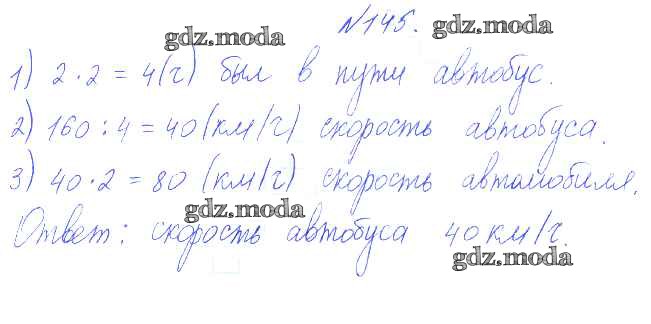 №145.
gdz.moda gdz.moda
1) 2·2=4(ч) был в пути автобус.
2) 160:4=40(км/ч) скорость автобуса.
3) 40·2=80(км/ч) скорость автомобиля.
gdz.moda
Ответ: скорость автобуса 40км/ч.
gdz.moda